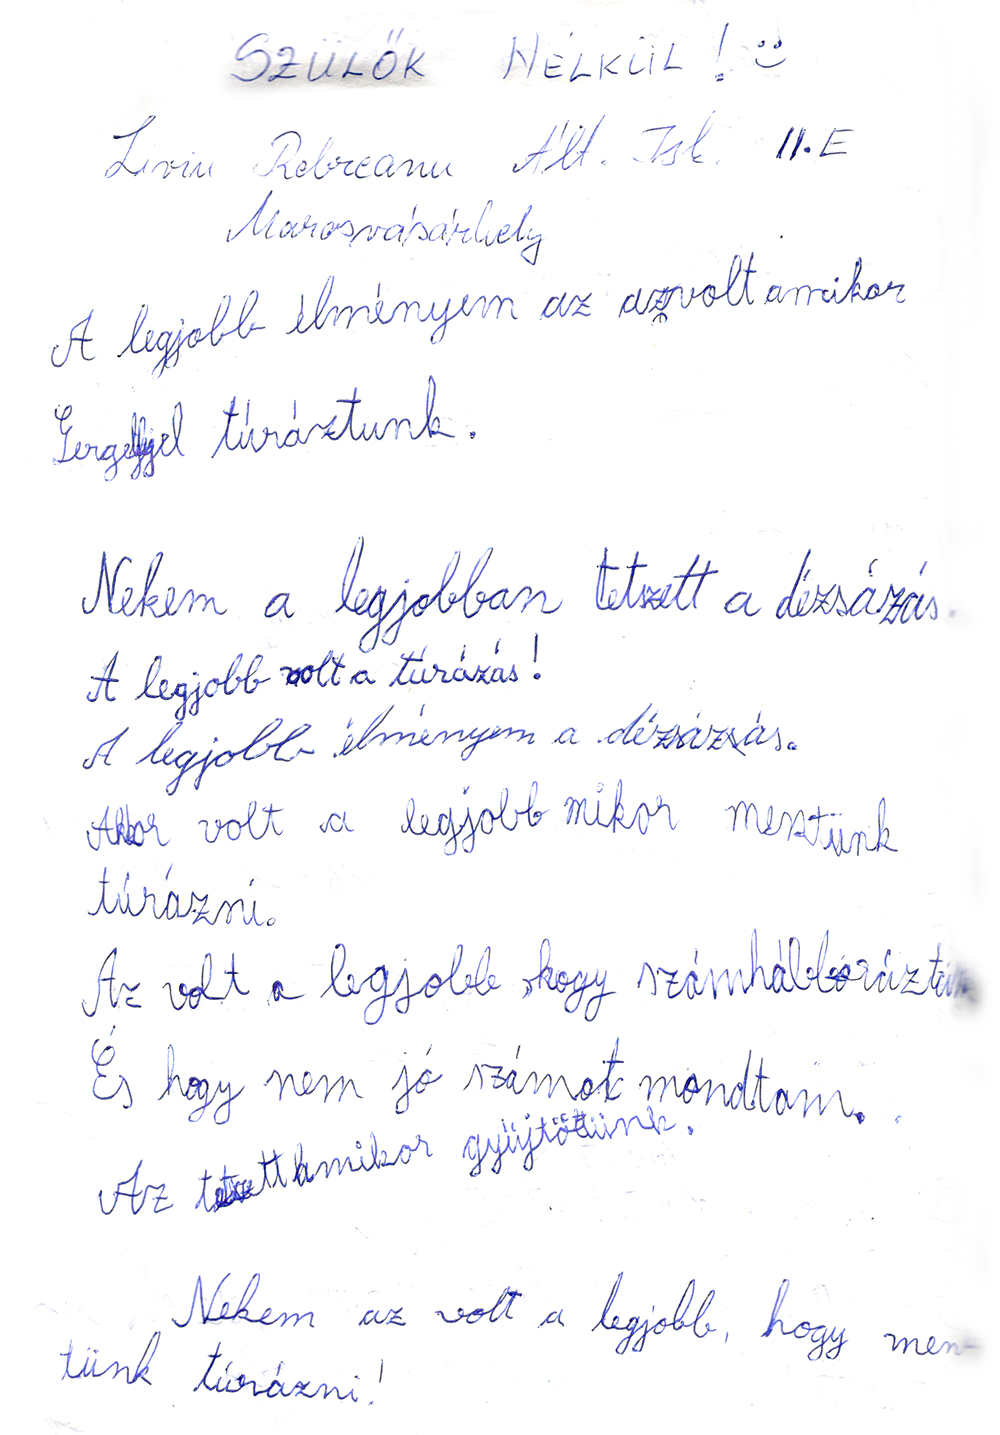 SZÜLŐK NÉLKÜL! :)
Liviu Rebreanu Ált. Isk. II.E
Marosvásárhely
A legjobb élményem az az volt amikor
Gergellyel túráztunk.
Nekem a legjobban tetszett a dézsázás.
A legjobb volt a túrázás!
A legjobb élményem a dézsázás.
Akkor volt a legjobb mikor mentünk
túrázni.
Az volt a legjobb, hogy számháborúztunk
És hogy nem jó számot mondtam.
Az tetszett amikor gyűjtöttünk.
Nekem az volt a legjobb, hogy men-
tünk túrázni!